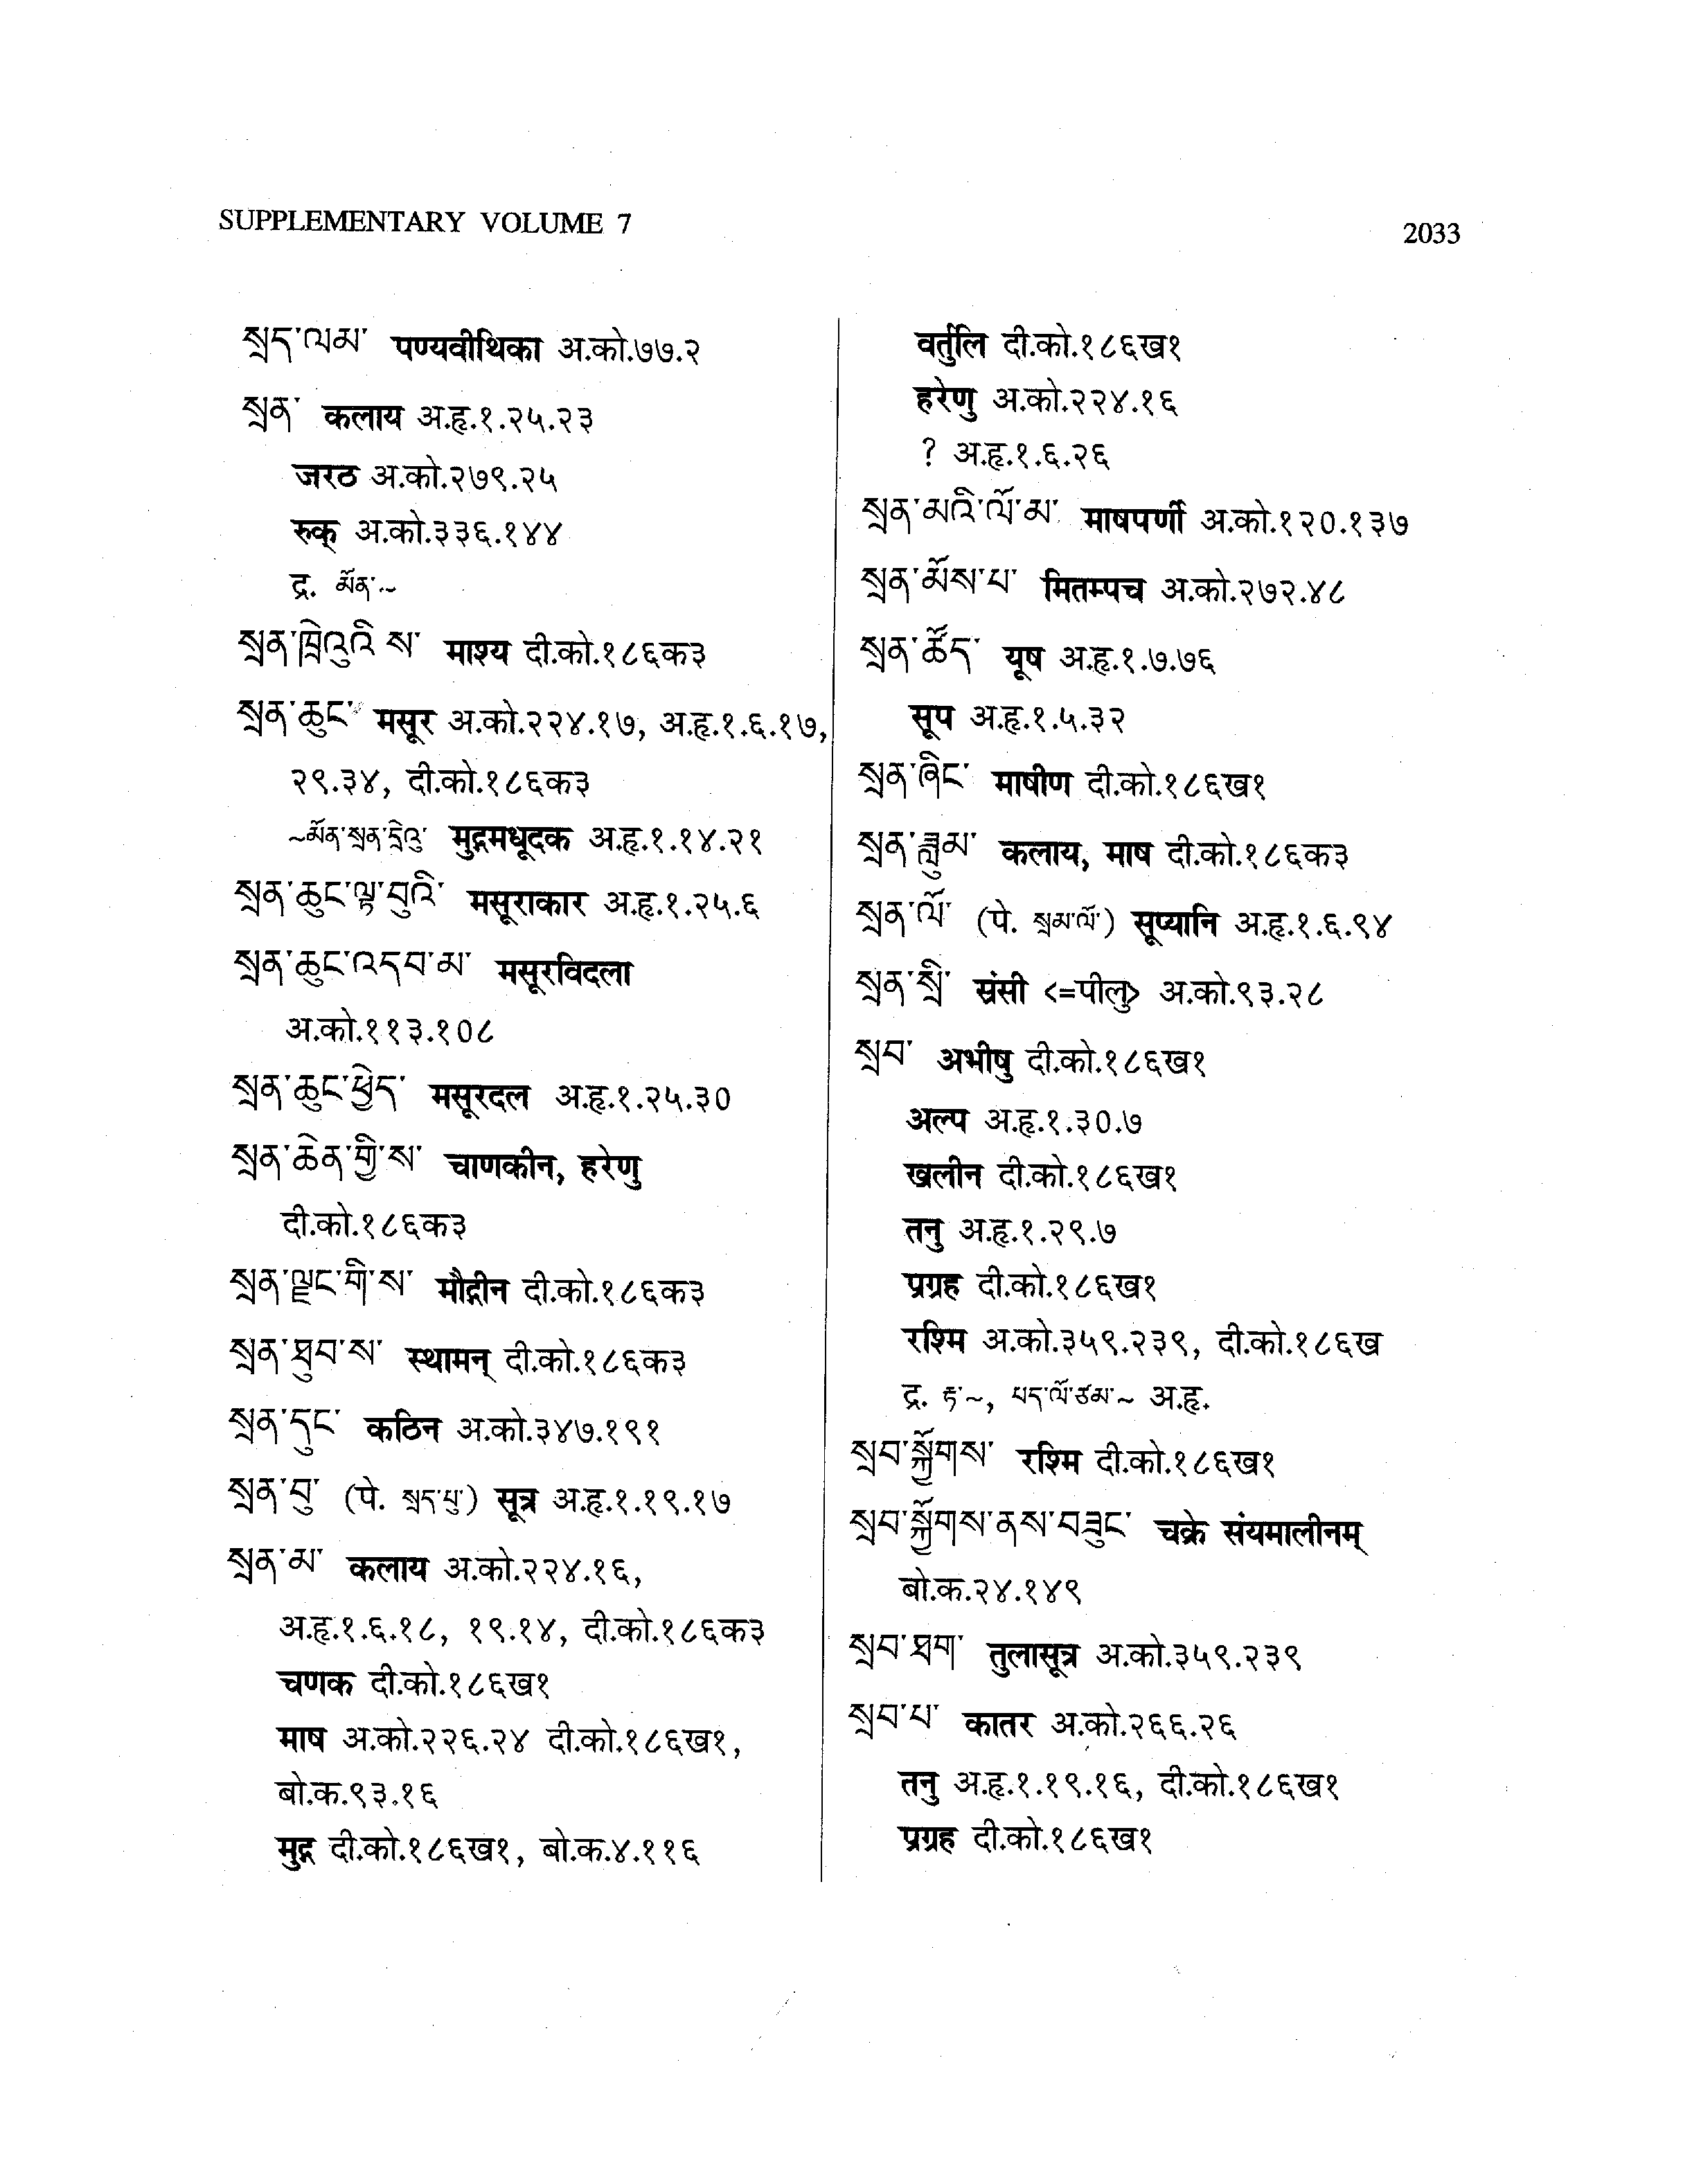 SUPPLEMENTARY VOLUME 7
2033
སྲད་ལམ་ पण्यवीथिका अ.को.७७.२
སྲན་ कलाय अ.हृ.१.२५.२३
जरठ अ.को.२७९.२५
रुक् अ.को.३३६.१४४
द्र. མོན་~
སྲན་ཁྲེའུའི་ས་ माश्य दी.को.१८६क३
སྲན་ཆུང་ मसूर अ.को.२२४.१७, अ.हृ.१.६.१७,
२९.३४, दी.को.१८६क३
~མོན་སྲན་དྲེའུ་ मुद्गमधूदक अ.हृ.१.१४.२१
སྲན་ཆུང་ལྟ་བུའི་ मसूराकार अ.हृ.१.२५.६
སྲན་ཆུང་འདབ་མ་ मसूरविदला
अ.को.११३.१०८
སྲན་ཆུང་ཕྱེད་ मसूरदल अ.हृ.१.२५.३०
སྲན་ཆེན་གྱི་ས་ चाणकीन, हरेणु
दी.को.१८६क३
སྲན་ལྗང་གི་ས་ मौद्गीन दी.को.१८६क३
སྲན་ཐུབ་ས་ स्थामन् दी.को.१८६क३
སྲན་དུང་ कठिन अ.को.३४७.१९१
སྲན་བུ་ (पे. སྲད་པུ་) सूत्र अ.हृ.१.१९.१७
སྲན་མ་ कलाय अ.को.२२४.१६,
अ.हृ.१.६.१८, १९.१४, दी.को.१८६क३
चणक दी.को.१८६ख१
माष अ.को.२२६.२४ दी.को.१८६ख१,
बो.क.९३.१६
मुद्ग दी.को.१८६ख१, बो.क.४.११६
वर्तुलि दी.को.१८६ख१
हरेणु अ.को.२२४.१६
? अ.हृ.१.६.२६
སྲན་མའི་ལོ་མ་ माषपर्णी अ.को.१२०.१३७
སྲན་མོས་པ་ मितम्पच अ.को.२७२.४८
སྲན་ཚོད་ यूष अ.हृ.१.७.७६
सूप अ.हृ.१.५.३२
སྲན་ཞིང་ माषीण दी.को.१८६ख१
སྲན་ཟླུམ་ कलाय, माष दी.को.१८६क३
སྲན་ལོ་ (पे. སྲམ་ལོ་) सूप्यानि अ.हृ.१.६.९४
སྲན་སྲི་ स्रंसी <=पीलु> अ.को.९३.२८
སྲབ་ अभीषु दी.को.१८६ख१
अल्प अ.हृ.१.३०.७
खलीन दी.को.१८६ख१
तनु अ.हृ.१.२९.७
प्रग्रह दी.को.१८६ख१
रश्मि अ.को.३५९.२३९, दी.को.१८६ख
द्र. རྟ་~, པད་ལོ་ཙམ་~ अ.हृ.
སྲབ་སྐྱོགས་ रश्मि दी.को.१८६ख१
སྲབ་སྐྱོགས་ནས་བཟུང་ चक्रे संयमालीनम्
बो.क.२४.१४९
སྲབ་ཐག་ तुलासूत्र अ.को.३५९.२३९
སྲབ་པ་ कातर अ.को.२६६.२६
तनु अ.हृ.१.१९.१६, दी.को.१८६ख१
प्रग्रह दी.को.१८६ख१